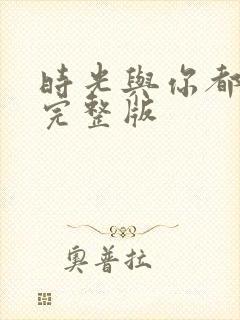 時光與你都
完整版
奧普拉